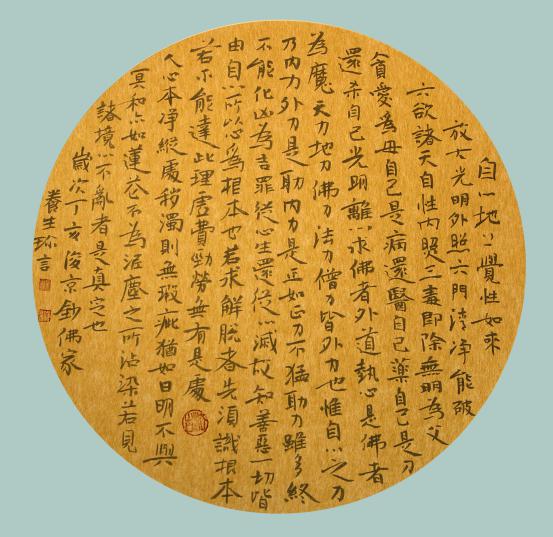 自心地上覺性如來
放大光明外照六門清净能破
六欲諸天自性内照三毒即除無明為父
貪愛為母自己是病還醫自己藥自己是刀
還杀自己光明離心求佛者外道執心是佛者
為魔天力地力佛力法力僧力皆外力也惟自心之力
乃内力外力是助内力是正如正力不猛助力雖多終
不能化凶為吉罪從心生還從心滅故知善惡一切皆
由自心所以心為根本也若求解脱者先須識根本
若不能達此理虚費勤勞無有是處
人心本净縱處秽濁則無瑕疵猶如日明不與
冥和亦如蓮花不為泥塵之所沾染若見
諸境心不亂者是真定也
歲次丁亥俊京鈔佛家
養生珎言